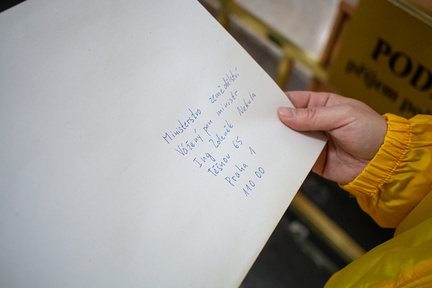 Ministerstvo zemědělství
Vážený pan ministr
Ing Zdeněk Nekula
Těšnov 65
Praha 1
110 00
POD
příjem po